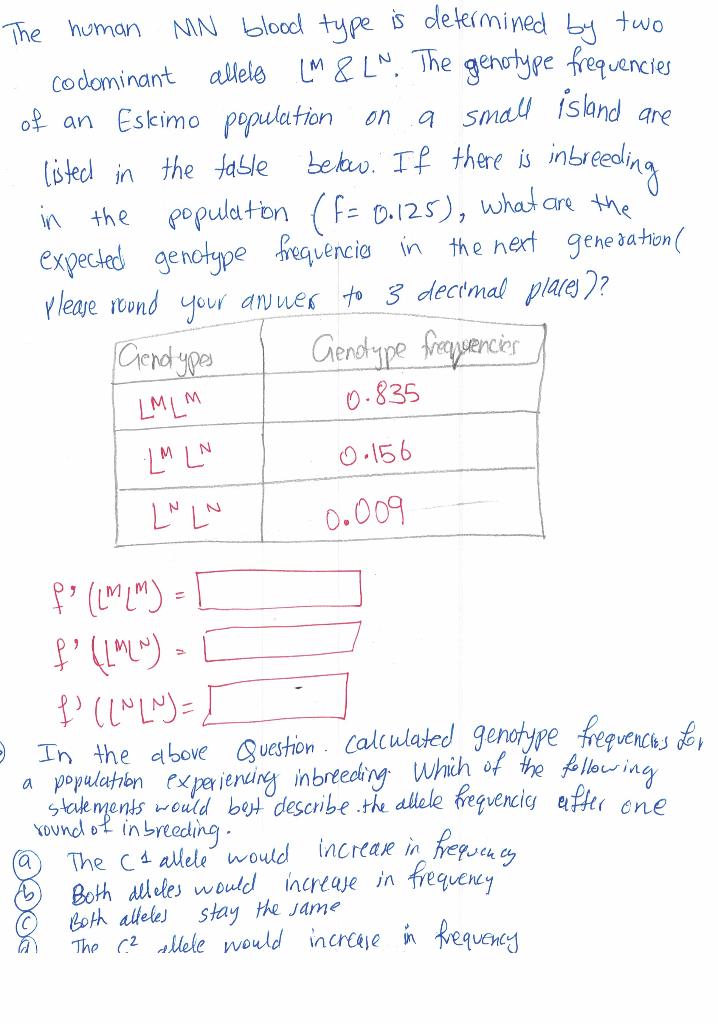 The human MN blood type is determined by two
codominant alleles L^M & L^N. The genotype frequencies
of an Eskimo population on a small island are
listed in the table below. If there is inbreeding
in the population (f= 0.125), what are the
expected genotype frequencies in the next generation(
Please round your answer to 3 decimal places)?
Genotypes Genotype frequencies
L^M L^M 0.835
L^M L^N 0.156
L^N L^N 0.009
f' (L^M L^M) =
f' (L^M L^N) =
f' (L^N L^N) =
In the above Question. calculated genotype frequencies for
a population experiencing inbreeding. Which of the following
statements would best describe the allele frequencies after one
round of inbreeding.
a The C1 allele would increase in frequency
b Both alleles would increase in frequency
c Both alleles stay the same
d The C2 allele would increase in frequency